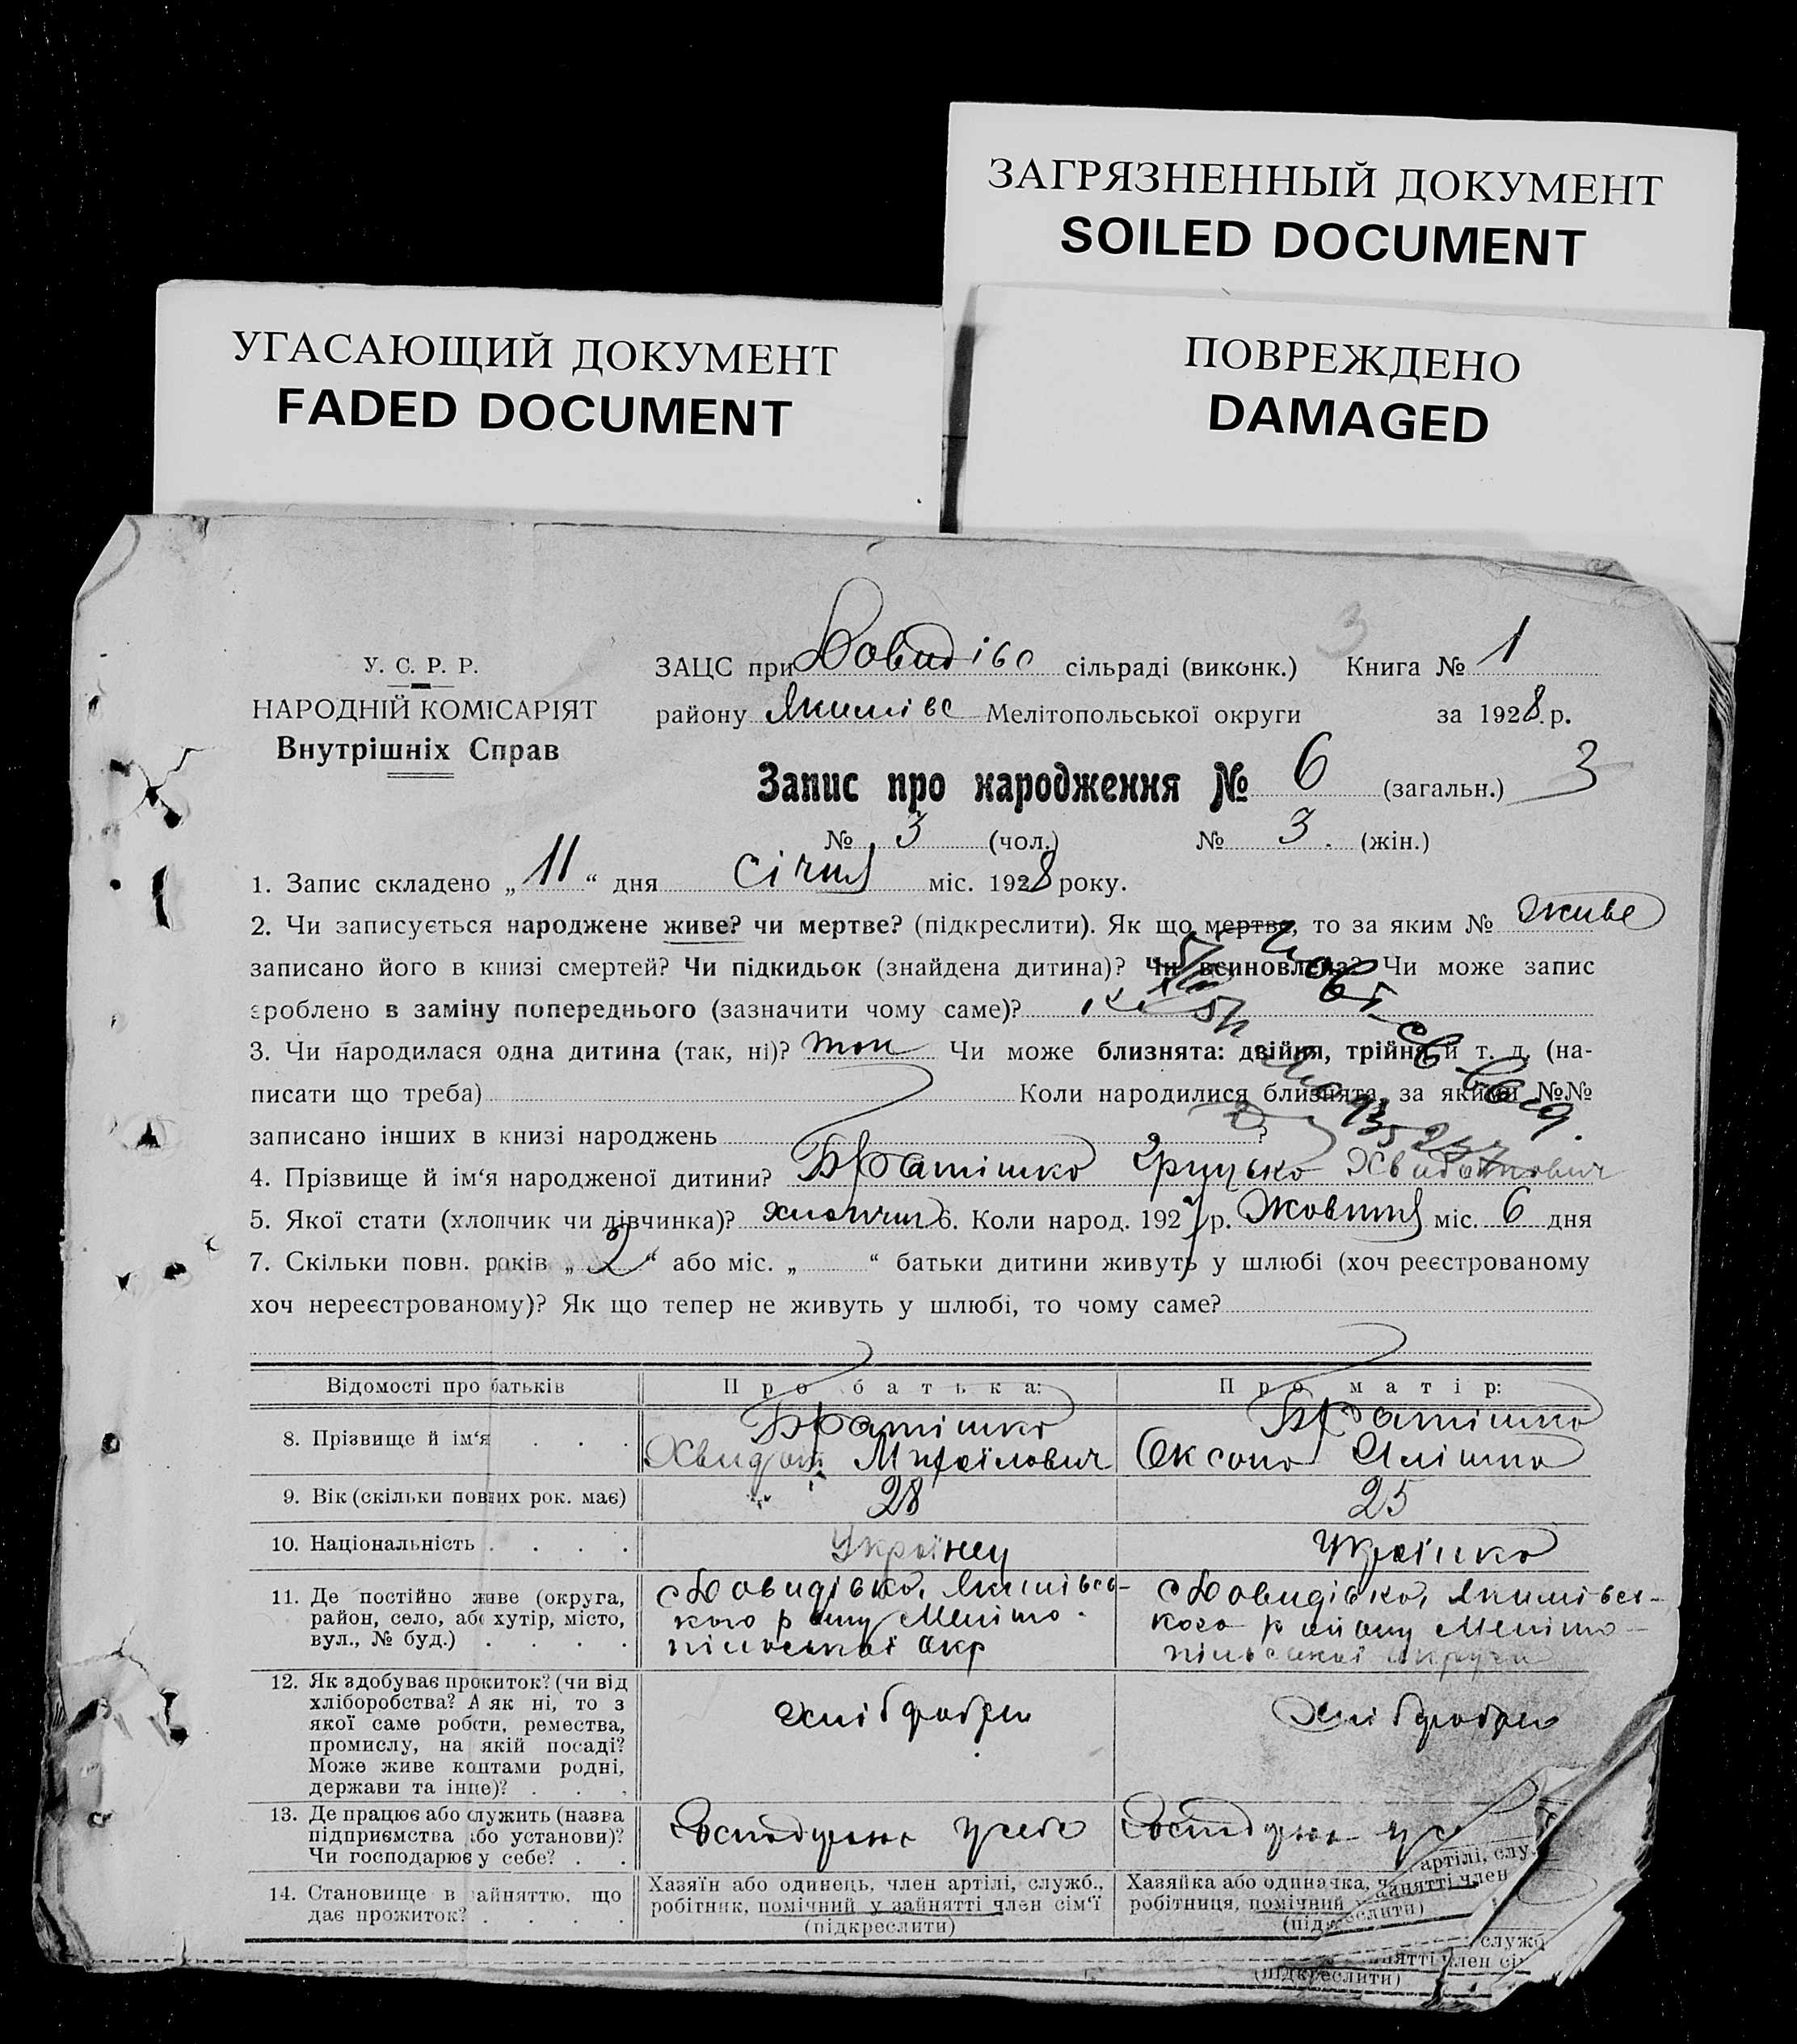 ЗАГРЯЗНЕННЫЙ ДОКУМЕНТ
SOILED DOCUMENT
УГАСАЮЩИЙ ДОКУМЕНТ
FADED DOCUMENT
ПОВРЕЖДЕНО
DAMAGED
3
У. С. Р. Р.
НАРОДНІЙ КОМІСАРІЯТ
Внутрішніх Справ
ЗАЦС при Довидівс сільраді (виконк.) Книга № 1
району Якимівс Мелітопольської округи за 1928 р.
Запис про народження № 6 (загальн.) 3
№ 3 (чол.) № 3. (жін.)
1. Запис складено „ 11 “ дня січня міс. 1928 року.
2. Чи записується народжене живе? чи мертве? (підкреслити). Як що мертве, то за яким № живе
записано його в книзі смертей? Чи підкидьок (знайдена дитина)? Чи всиновлена? Чи може запис
зроблено в заміну попереднього (зазначити чому саме)?
3. Чи народилася одна дитина (так, ні)? так Чи може близнята: двійня, трійня й т. д. (на-
писати що треба) Коли народилися близнята, за якими №№
записано інших в книзі народжень ?
4. Прізвище й ім‘я народженої дитини? Грицько
5. Якої стати (хлопчик чи дівчинка)? хлопчик 6. Коли народ. 1927 р. Жовтня міс. 6 дня
7. Скільки повн. років „ 2 “ або міс. „ “ батьки дитини живуть у шлюбі (хоч реєстрованому
хоч нереєстрованому)? Як що тепер не живуть у шлюбі, то чому саме?
Відомості про батьків
Про батька:
Про матір:
8. Прізвище й ім‘я . . .
Михайлович
Оксана
9. Вік (скільки повних рок. має)
28
25
10. Національність . . . .
Українец
Українка
11. Де постійно живе (округа,
район, село, або хутір, місто,
вул., № буд.) . . . .
Довидівка, Якимівсь-
кого району Меліто-
пільської окр
Довидівка, Якимівсь-
кого району Меліто-
пільської округи
12. Як здобуває прожиток? (чи від
хліборобства? А як ні, то з
якої саме роботи, ремества,
промислу, на якій посаді?
Може живе коштами родні,
держави та інше)? . . .
13. Де працює або служить (назва
підприємства або установи)?
Чи господарює у себе? . .
14. Становище в зайняттю, що
дає прожиток? . . . .
Хазяїн або одинець, член артілі, служб.,
робітник, помічний у зайнятті член сім‘ї
(підкреслити)
Хазяйка або одиначка, ч артілі, слу
робітниця, помічний зайнятті член
(підкреслити)
служб
нятті член сі
(підкреслити)